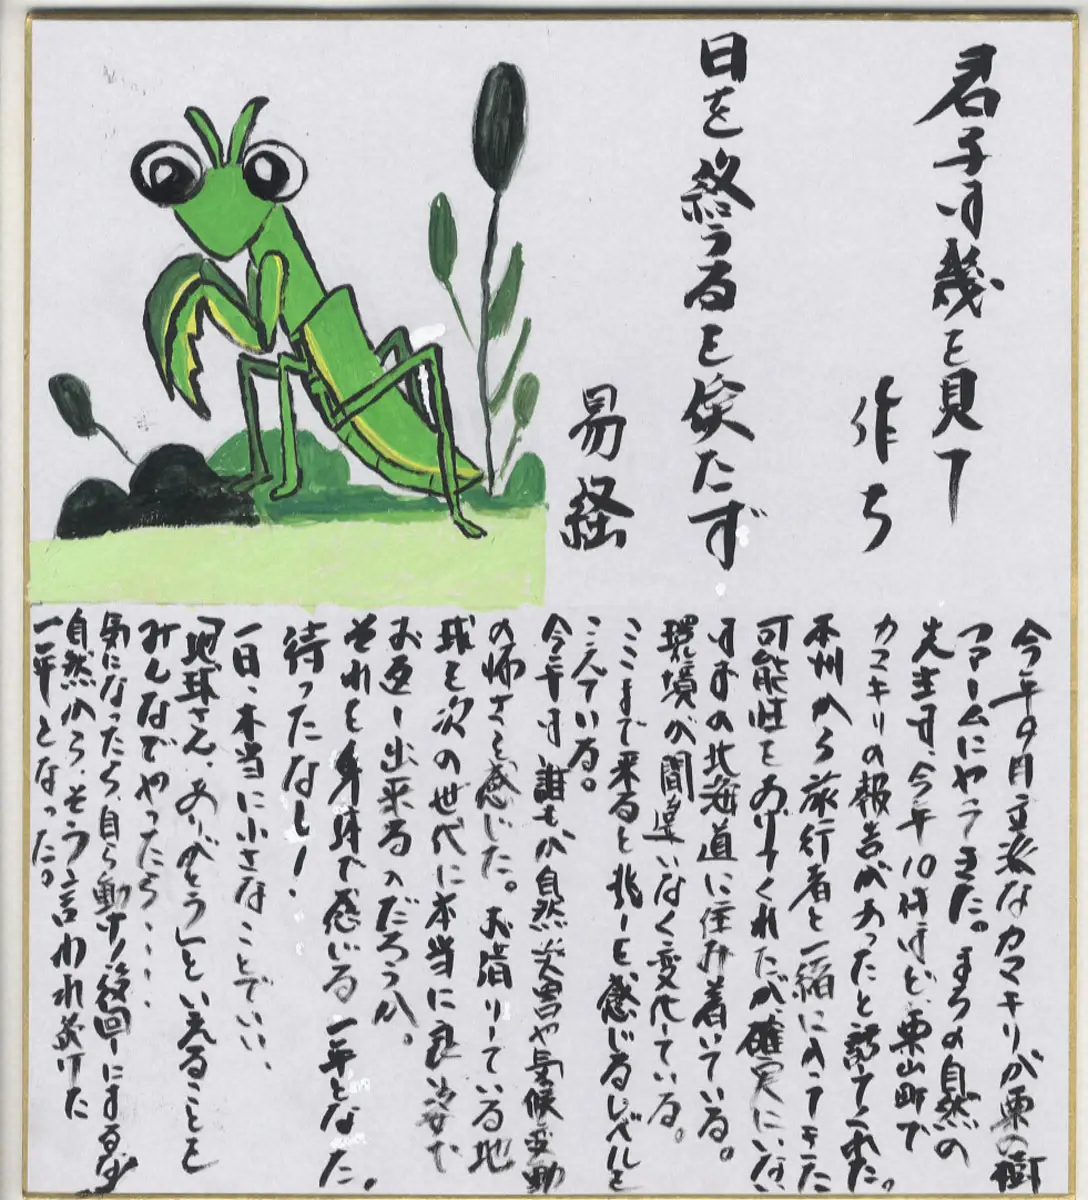 君子は幾を見て
作ち
日を終うるを俟たず
易経
今年9月立派なカマキリが栗の樹
ファームにやってきた。まちの自然の
先生は、今年10件ほど、栗山町で
カマキリの報告があったと話してくれた。
本州から旅行者と一緒に入ってきた
可能性をあげてくれたが、確実にいない
はずの北海道に住み着いている。
環境が間違いなく変化している。
ここまで来ると兆しを感じるレベルを
こえている。
今年は誰もが自然災害や気候変動
の怖さを感じた。お借りしている地
球を次の世代に本当に良い姿で
お返し出来るのだろうか。
それを身体で感じる一年となった。
待ったなし!
一日、本当に小さなことでいい、
「地球さん、ありがとう」といえることを
みんなでやったら・・・・
気になったら、自ら動け!後回しにするな
自然から、そう言われ続けた
一年となった。